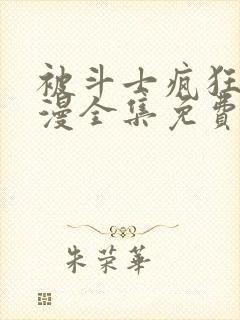 被斗士疯狂
漫全集免費
朱荣華